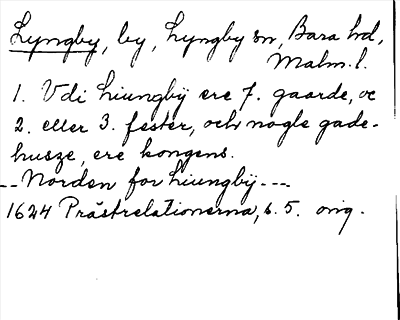 Lyngby, by, Lyngby sn, Bara hd,
Malm. l.
1. Vdi Liungbÿ ere 7. gaarde, oc
2. eller 3. fester, och nogle gade-
husze, ere kongens.
-- Norden for Liungbÿ ---
1624 Prästrelationerna, s. 5. orig.